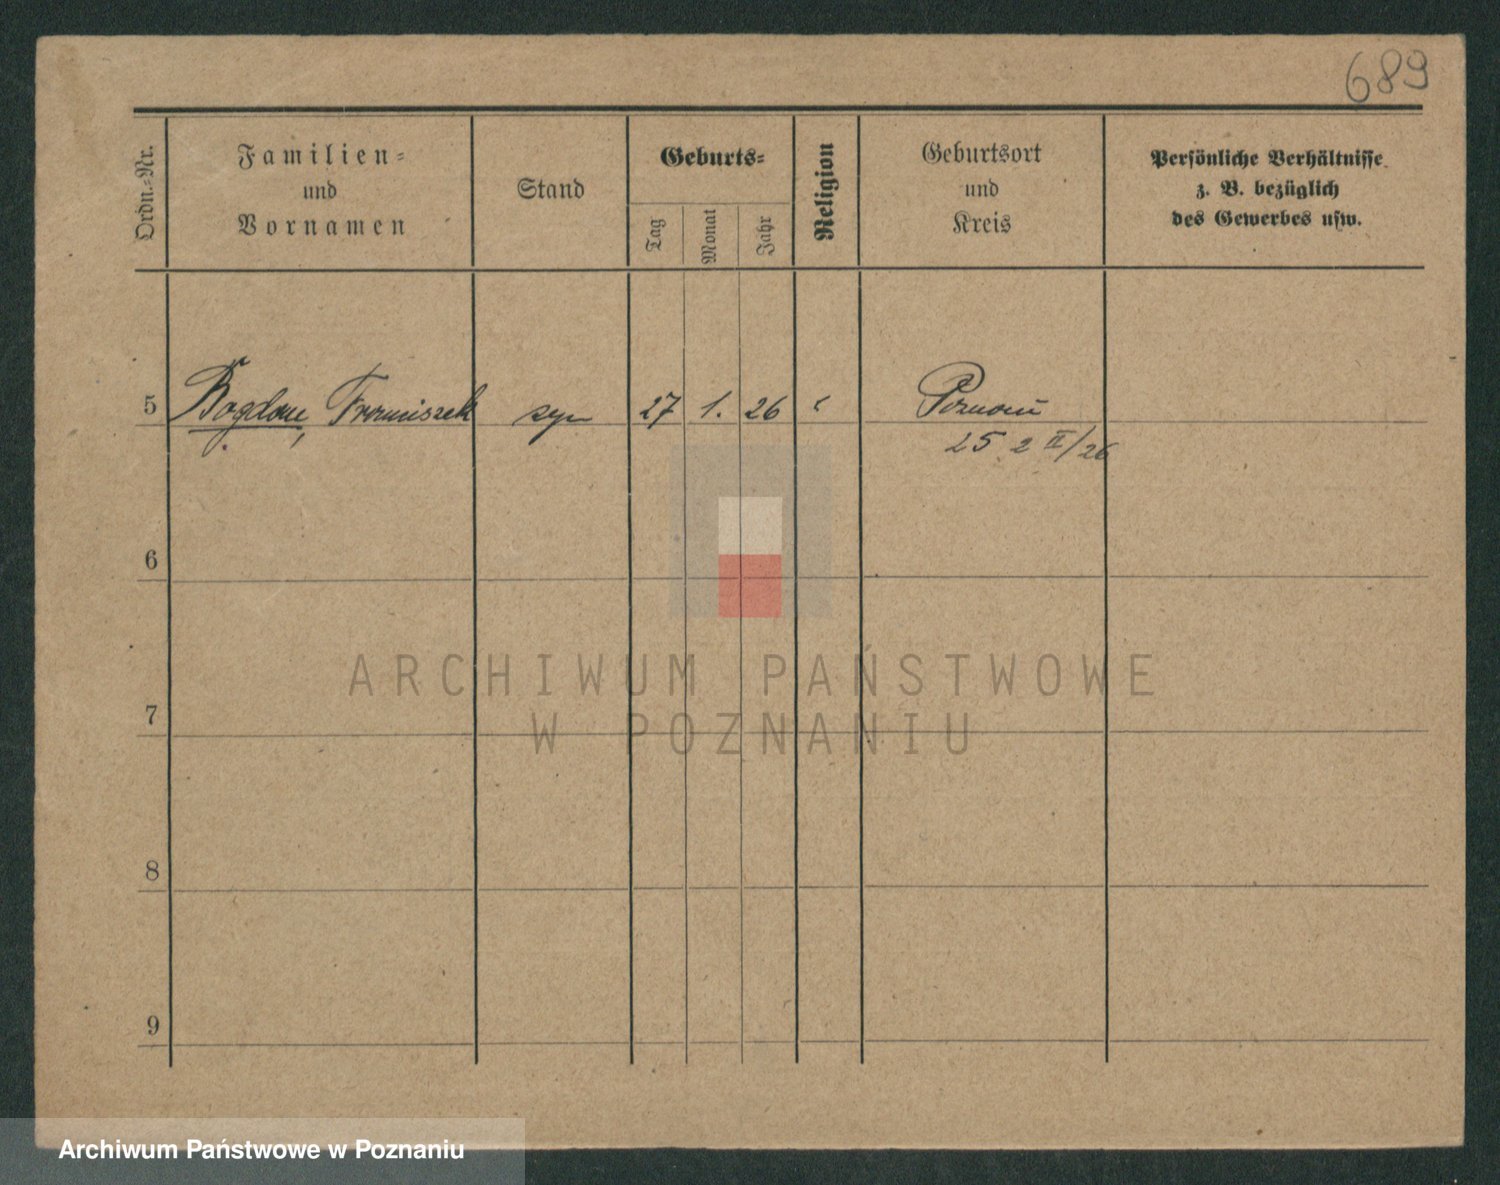 689
Ordn.-Nr.
Familien-
und
Vornamen
Stand
Geburts-
Tag
Monat
Jahr
Religion
Geburtsort
und
Kreis
Persönliche Verhältnisse
z. B. bezüglich
des Gewerbes usw.
5 Franciszek syn 27 1. 26 Poznań
25 2 II/26
6
7
8
9
ARCHIWUM PAŃSTWOWE
W POZNANIU
Archiwum Państwowe w Poznaniu